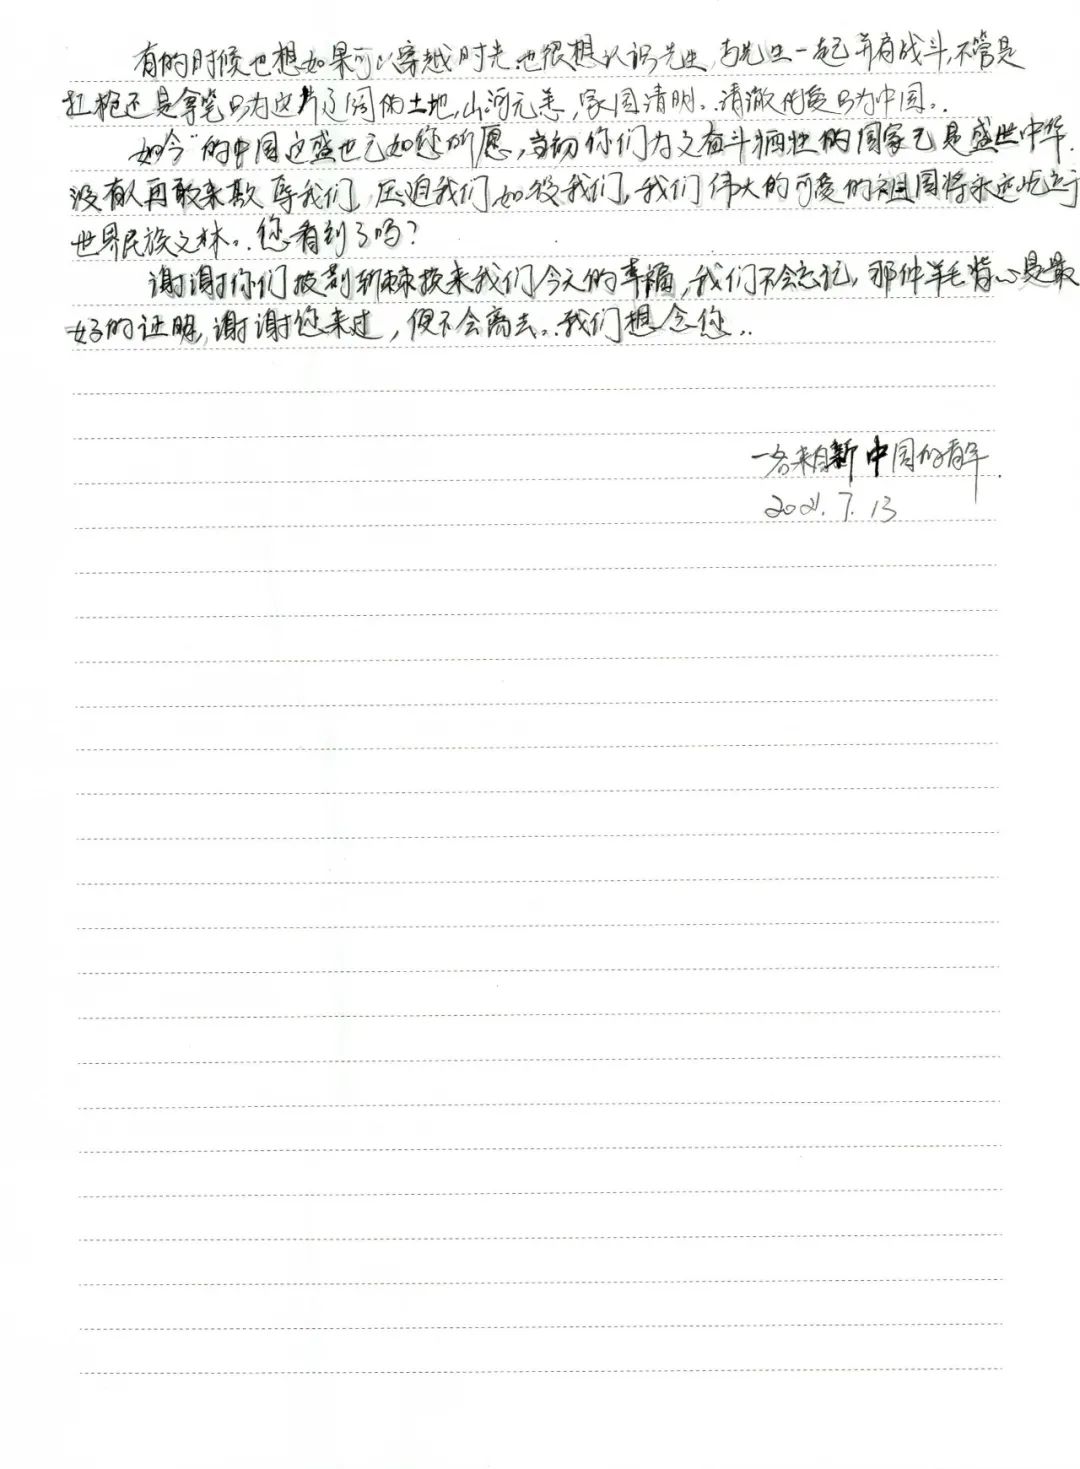 有的时候也想如果可以穿越时光,也很想认识先生,与先生一起并肩战斗,不管是
扛枪还是拿笔只为这片辽阔的土地,山河无恙,家国清明。清澈的爱只为中国。
如今的中国这盛世已如您所愿,当初你们为之奋斗牺牲的国家已是盛世中华.
没有人再敢来欺辱我们,压迫我们,奴役我们,我们伟大的可爱的祖国将永远屹立于
世界民族之林。您看到了吗?
谢谢你们披荆斩棘换来我们今天的幸福,我们不会忘记,那件羊毛背心是最
好的证明,谢谢您来过,便不会离去。我们想念您。
一名来自新中国的青年.
2021.7.13